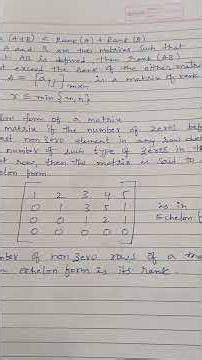 (A+B) ≤ Rank (A) + Rank (B)
A and B are two matrices such that
AB is defined then Rank (AB)
exceed the Rank of the either matrix
A = [aij]m×n is a matrix of rank
r ≤ min {m, n}
form of a matrix
matrix if the number of zeros before
non zero element in any row
number of such type of zeros in the
row, then the matrix is said to
form.
1 2 3 4 5
0 1 3 5 1 is in
0 0 1 2 1 Echelon
0 0 0 0 0
of non zero rows of a
echelon form is its rank.